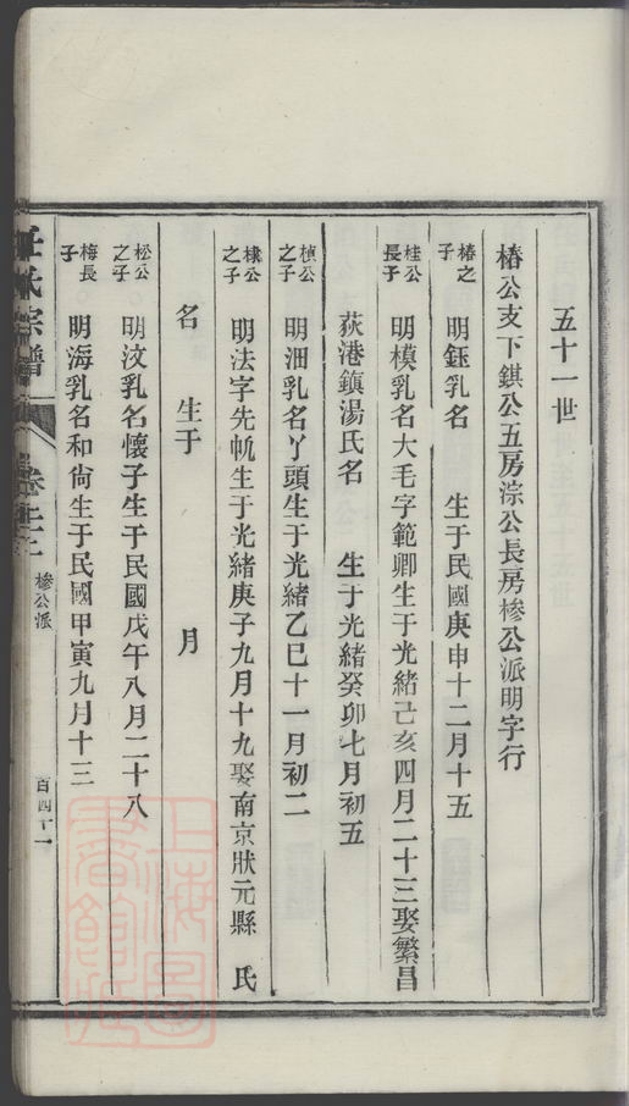 五十一世
椿公支下錤公五房淙公長房椮公派明字行
椿之子 明鈺乳名 生于民國庚申十二月十五
桂公長子 明模乳名大毛字範卿生于光緒己亥四月二十三娶繁昌
荻港鎮湯氏名 生于光緒癸卯七月初五
楨公之子 明沺乳名丫頭生于光緒乙巳十一月初二
棣公之子 明法字先帆生于光緒庚子九月十九娶南京狀元縣 氏
名 生于 月
松公之子 明汶乳名懷子生于民國戊午八月二十八
梅長子 明海乳名和尙生于民國甲寅九月十三
任氏宗譜 卷 椮公派 百四十一
上海圖書館藏